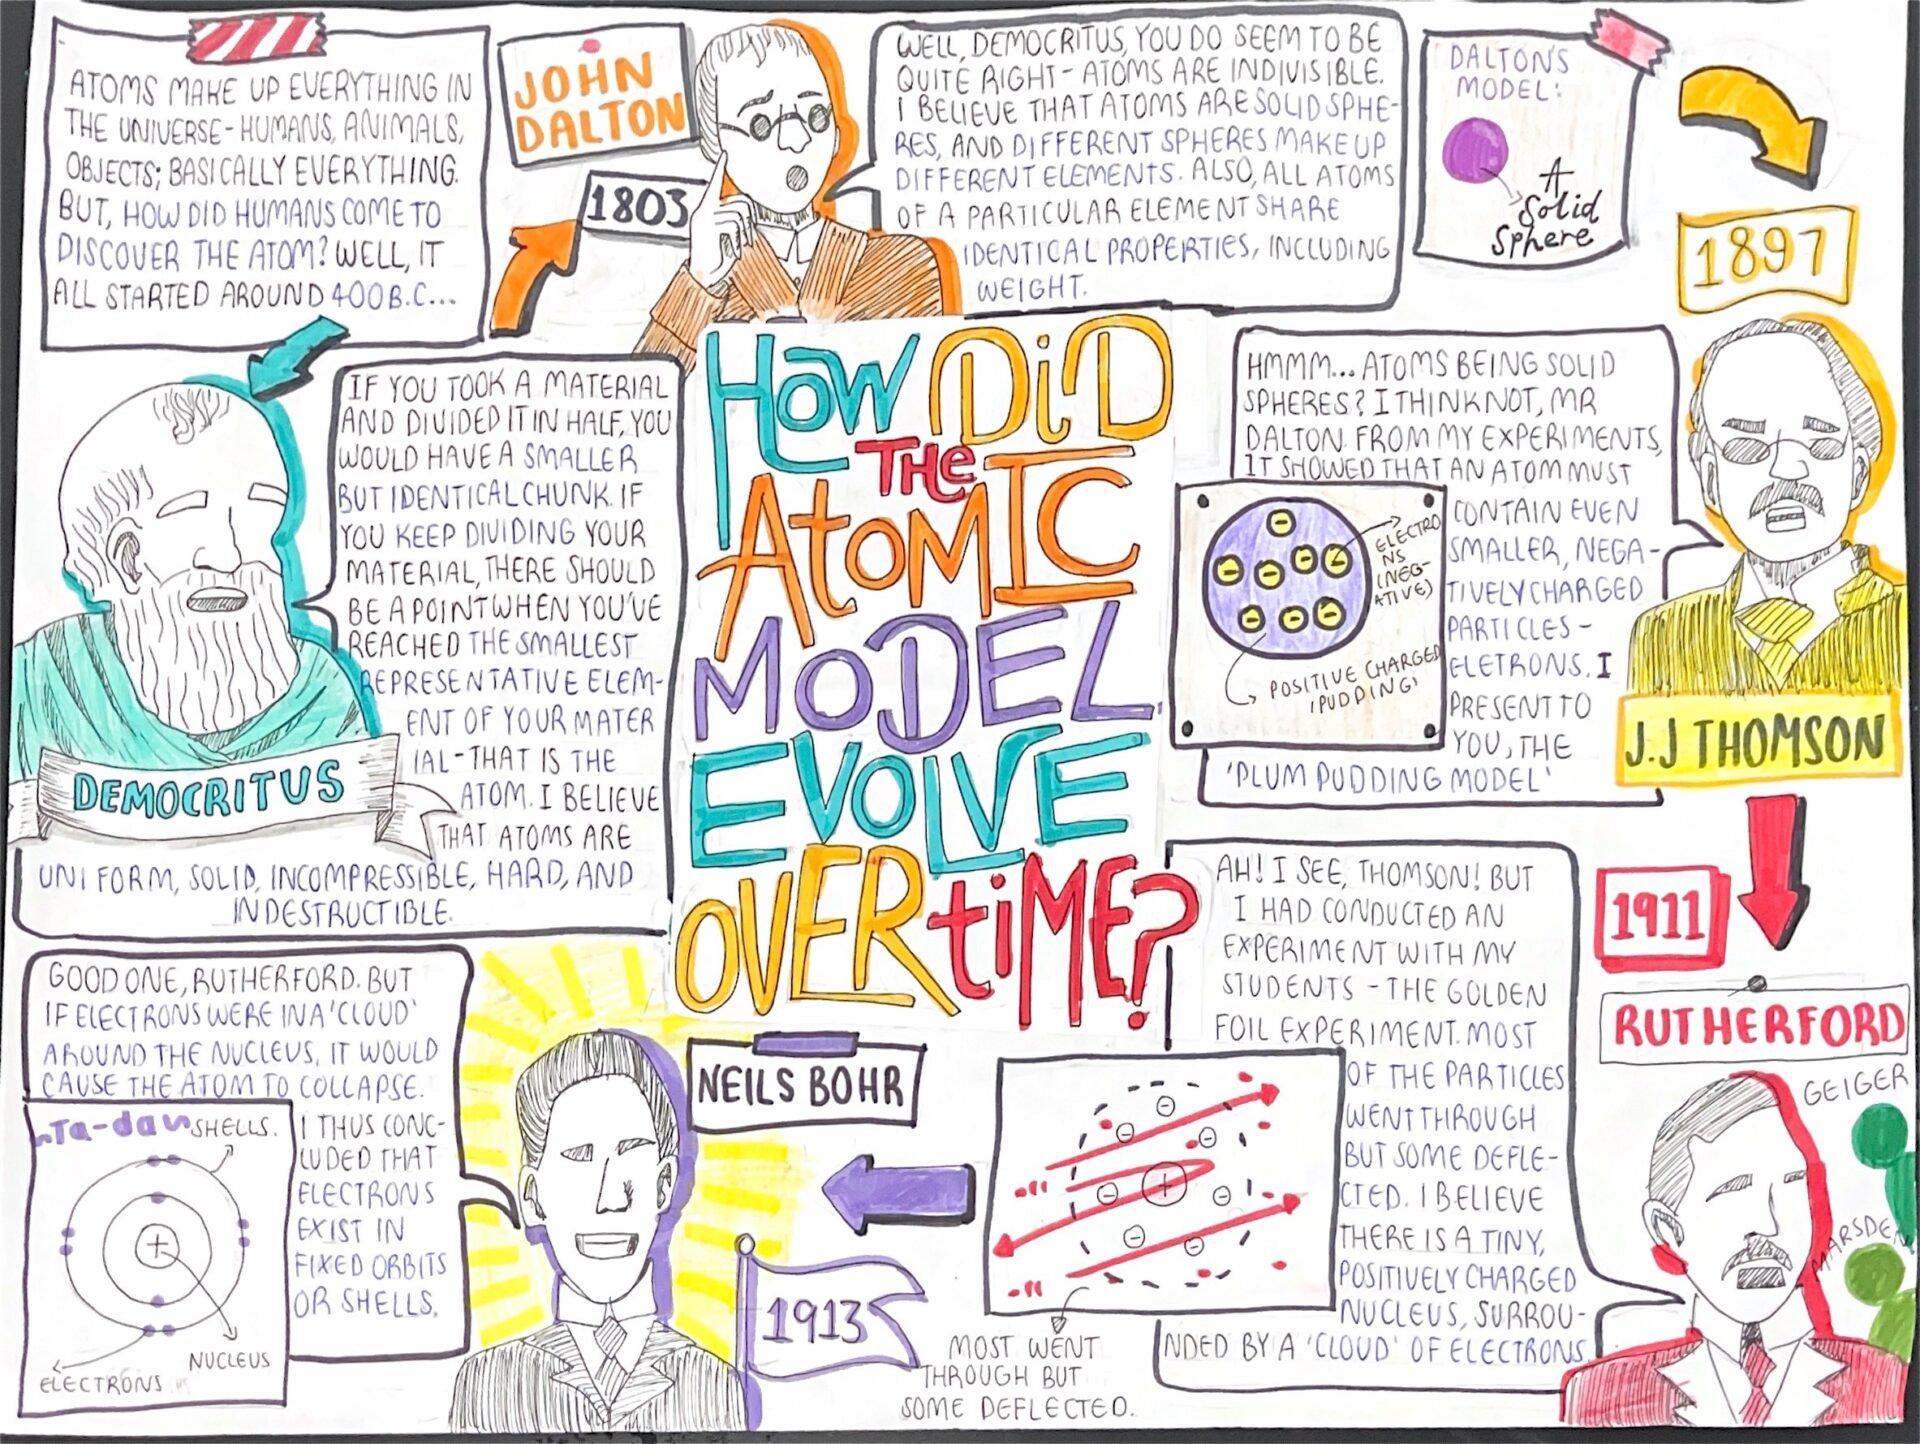 ATOMS MAKE UP EVERYTHING IN
THE UNIVERSE - HUMANS, ANIMALS,
OBJECTS; BASICALLY EVERYTHING.
BUT, HOW DID HUMANS COME TO
DISCOVER THE ATOM? WELL, IT
ALL STARTED AROUND 400 B.C...
IF YOU TOOK A MATERIAL
AND DIVIDED IT IN HALF, YOU
WOULD HAVE A SMALLER
BUT IDENTICAL CHUNK. IF
YOU KEEP DIVIDING YOUR
MATERIAL, THERE SHOULD
BE A POINT WHEN YOU'VE
REACHED THE SMALLEST
REPRESENTATIVE ELEM-
ENT OF YOUR MATER
IAL - THAT IS THE
ATOM. I BELIEVE
THAT ATOMS ARE
UNIFORM, SOLID, INCOMPRESSIBLE, HARD, AND
INDESTRUCTIBLE.
DEMOCRITUS
JOHN
DALTON
1803
WELL, DEMOCRITUS, YOU DO SEEM TO BE
QUITE RIGHT - ATOMS ARE INDIVISIBLE.
I BELIEVE THAT ATOMS ARE SOLID SPHE-
RES, AND DIFFERENT SPHERES MAKE UP
DIFFERENT ELEMENTS. ALSO, ALL ATOMS
OF A PARTICULAR ELEMENT SHARE
IDENTICAL PROPERTIES, INCLUDING
WEIGHT.
DALTON'S
MODEL:
A
Solid
Sphere
HOW DiD
THE
AtOMIC
MODEL
EVOLVE
OVER tiME?
1897
HMMM... ATOMS BEING SOLID
SPHERES? I THINK NOT, MR
DALTON. FROM MY EXPERIMENTS,
IT SHOWED THAT AN ATOM MUST
CONTAIN EVEN
SMALLER, NEGA-
TIVELY CHARGED
PARTICLES -
ELETRONS. I
PRESENT TO
YOU, THE
'PLUM PUDDING MODEL'
ELECTRO
NS
(NEG-
ATIVE)
POSITIVE CHARGED
'PUDDING'
J.J THOMSON
1911
RUTHERFORD
GEIGER
MARSDEN
AH! I SEE, THOMSON! BUT
I HAD CONDUCTED AN
EXPERIMENT WITH MY
STUDENTS - THE GOLDEN
FOIL EXPERIMENT. MOST
OF THE PARTICLES
WENT THROUGH
BUT SOME DEFLE-
CTED. I BELIEVE
THERE IS A TINY,
POSITIVELY CHARGED
NUCLEUS, SURROU-
NDED BY A 'CLOUD' OF ELECTRONS
MOST WENT
THROUGH BUT
SOME DEFLECTED.
NEILS BOHR
1913
GOOD ONE, RUTHERFORD. BUT
IF ELECTRONS WERE IN A 'CLOUD'
AROUND THE NUCLEUS, IT WOULD
CAUSE THE ATOM TO COLLAPSE.
I THUS CONC-
LUDED THAT
ELECTRONS
EXIST IN
FIXED ORBITS
OR SHELLS.
Ta-dah
SHELLS.
NUCLEUS
ELECTRONS